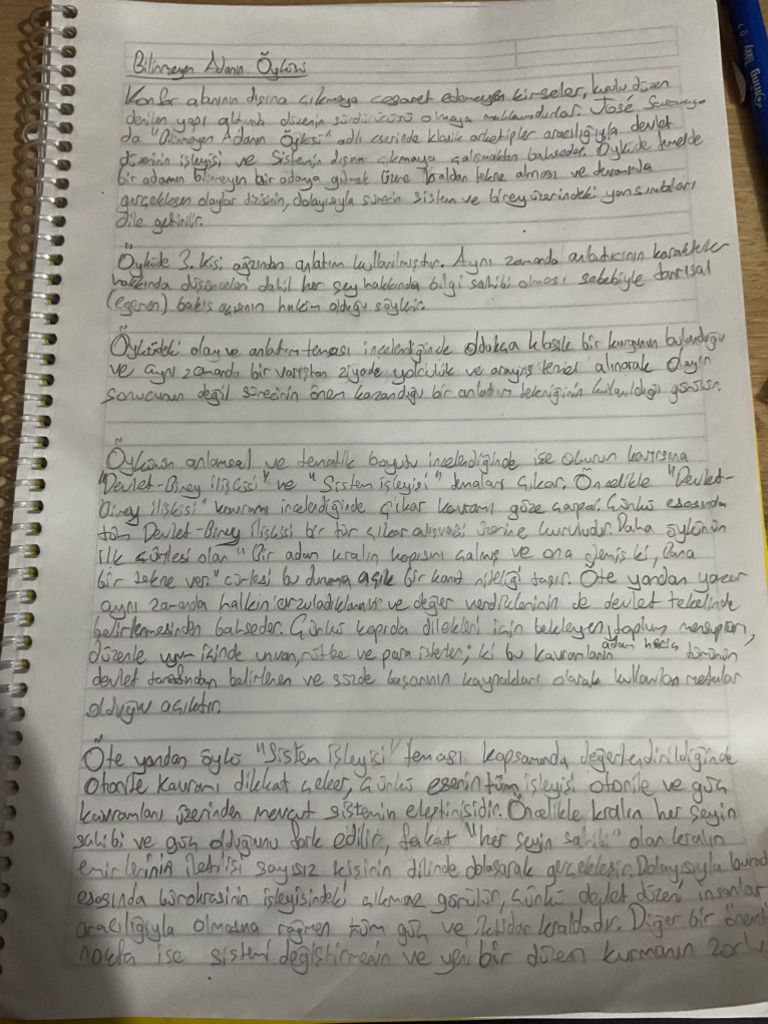 Bilinmeyen Adanın Öyküsü
Konfor alanının dışına çıkmaya cesaret edemeyen kimseler, kurulu düzen
denilen yapı altında düzenin sürdürücüsü olmaya mahkumdurlar. José Sarama
da "Bilinmeyen Adanın Öyküsü" adlı eserinde klasik arketipler aracılığıyla devlet
düzeninin işleyişi ve sistemin dışına çıkmaya çalışmaktan bahseder. Öyküde temelde
bir adamın bilinmeyen bir adaya gitmek üzere kraldan tekne alması ve devamında
gerçekleşen olaylar dizisinin, dolayısıyla sürecin sistem ve birey üzerindeki yansımaları
dile getirilir.
Öyküde 3. kişi ağzından anlatım kullanılmıştır. Aynı zamanda anlatıcının karakterler
hakkında düşünceleri dahil her şey hakkında bilgi sahibi olması sebebiyle tanrısal
(egemen) bakış açısının hakim olduğu söylenir.
Öyküdeki olay ve anlatım teması incelendiğinde oldukça klasik bir kurgunun bulunduğu
ve aynı zamanda bir varıştan ziyade yolculuk ve arayış temel alınarak olayın
sonucunun değil sürecinin önem kazandığı bir anlatım tekniğinin kullanıldığı görülür.
Öykünün anlamsal ve tematik boyutu incelendiğinde ise okurun karşısına
"Devlet-Birey ilişkisi" ve "Sistem işleyişi" temaları çıkar. Öncelikle "Devlet-
Birey ilişkisi" kavramı incelendiğinde çıkar kavramı göze çarpar. Çünkü esasında
tüm Devlet-Birey ilişkisi bir tür çıkar alışverişi üzerine kuruludur. Daha öykünün
ilk cümlesi olan "Bir adam kralın kapısını çalmış ve ona demiş ki, Bana
bir tekne ver." cümlesi bu duruma açık bir kanıt niteliği taşır. Öte yandan yazar
aynı zamanda halkın arzuladıklarının ve değer verdiklerinin de devlet tekelinde
belirlenmesinden bahseder. Çünkü kapıda dilekleri için bekleyen, toplum mensupları,
düzenle uyum içinde unvan, rütbe ve para isterler; ki bu kavramların adam hariç tümünün
devlet tarafından belirlenen ve sözde başarının kaynakları olarak kullanılan metalar
olduğu açıktır.
Öte yandan öykü "Sistem işleyişi" teması kapsamında değerlendirildiğinde
otorite kavramı dikkat çeker, çünkü eserin tüm işleyişi otorite ve güç
kavramları üzerinden mevcut sistemin eleştirisidir. Öncelikle kralın her şeyin
sahibi ve güç olduğunu fark edilir, fakat "her şeyin sahibi" olan kralın
emirlerinin iletilişi sayısız kişinin dilinde dolaşarak gerçekleşir. Dolayısıyla burad
esasında bürokrasinin işleyişindeki çıkmaz görülür, çünkü devlet düzeni insanlar
aracılığıyla olmasına rağmen tüm güç ve iktidar kraldadır. Diğer bir önemli
nokta ise sistemi değiştirmenin ve yeni bir düzen kurmanın zorlu